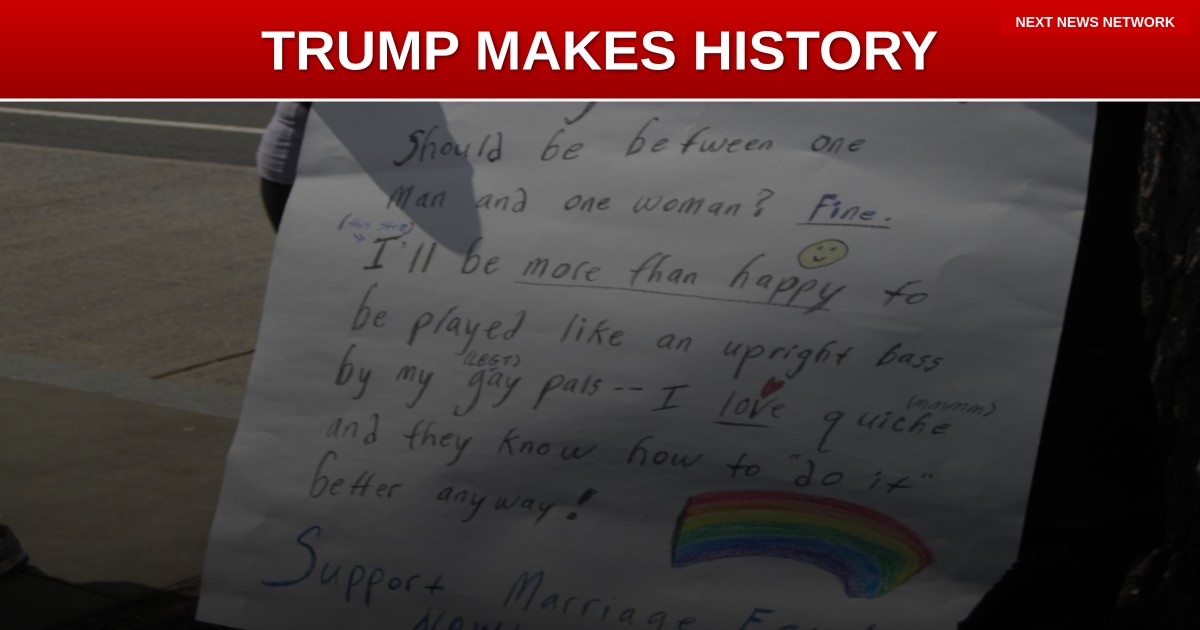 NEXT NEWS NETWORK
TRUMP MAKES HISTORY
Should be between one
man and one woman? Fine.
(this size)
I'll be more than happy to
be played like an upright bass
(LGBT)
by my gay pals -- I love quiche
(mmmm)
and they know how to "do it"
better anyway!
Support Marriage
Now